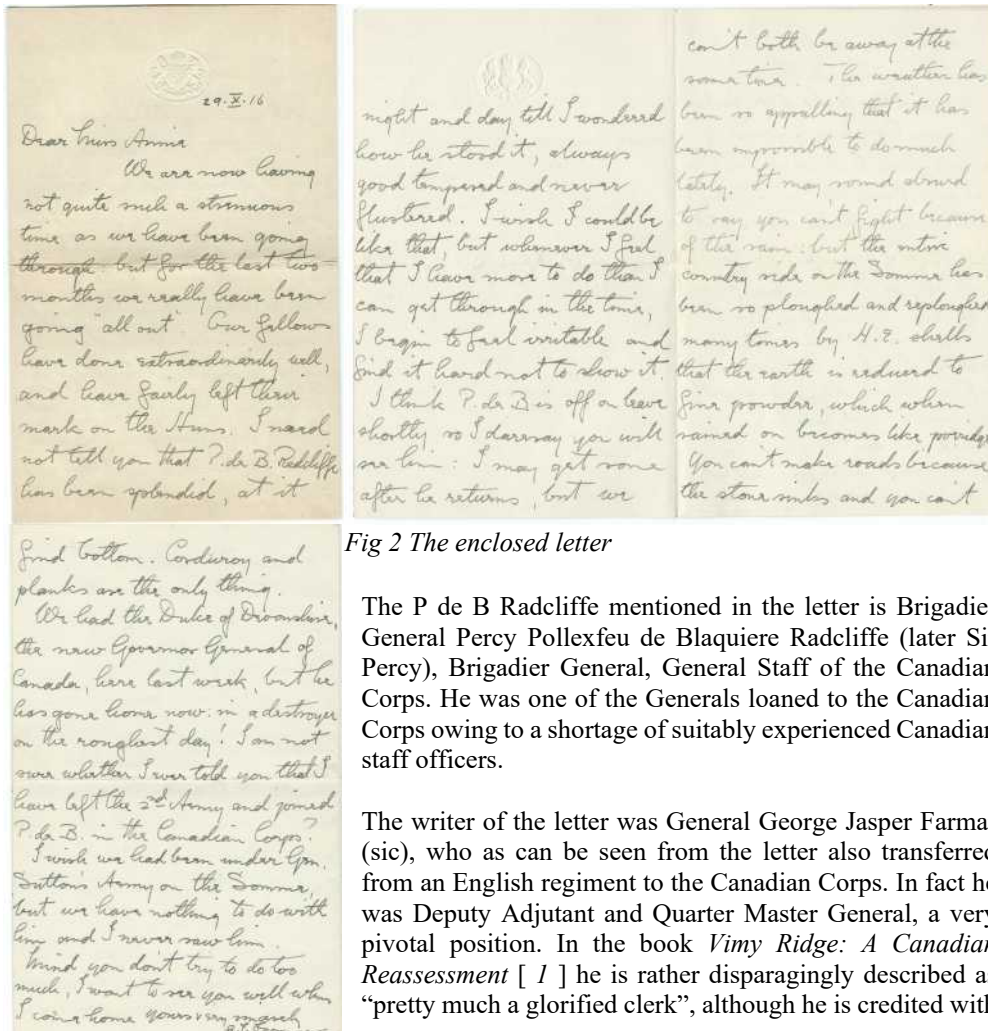 29·X·16
Dear Miss Annie
We are now having
not quite such a strenuous
time as we have been going
through: but for the last two
months we really have been
going "all out". Our fellows
have done extraordinarily well,
and have fairly left their
mark on the Huns. I need
not tell you that P. de B. Radcliffe
has been splendid, at it
night and day till I wondered
how he stood it, always
good tempered and never
flustered. I wish I could be
like that, but whenever I feel
that I have more to do than I
can get through in the time,
I begin to feel irritable and
find it hard not to show it.
I think P. de B is off on leave
shortly so I daresay you will
see him: I may get some
after he returns, but we
can't both be away at the
same time. The weather has
been so appalling that it has
been impossible to do much
lately. It may sound absurd
to say you can't fight because
of the rain: but the entire
country side on the Somme has
been so ploughed and reploughed
many times by H.E. shells
that the earth is reduced to
fine powder, which when
rained on becomes like porridge
You can't make roads because
the stone sinks and you can't
find bottom. Corduroy and
planks are the only thing.
We had the Duke of Devonshire,
the new Governor General of
Canada, here last week, but he
has gone home now: in a destroyer
on the roughest day! I am not
sure whether I ever told you that I
have left the 2nd Army and joined
P. de B. in the Canadian Corps?
I wish we had been under Gen.
Sutton's Army on the Somme,
but we have nothing to do with
him and I never saw him.
Mind you don't try to do too
much, I want to see you well when
I come home yours very
Fig 2 The enclosed letter
The P de B Radcliffe mentioned in the letter is Brigadie
General Percy Pollexfeu de Blaquiere Radcliffe (later Si
Percy), Brigadier General, General Staff of the Canadian
Corps. He was one of the Generals loaned to the Canadian
Corps owing to a shortage of suitably experienced Canadian
staff officers.
The writer of the letter was General George Jasper Farma
(sic), who as can be seen from the letter also transferred
from an English regiment to the Canadian Corps. In fact he
was Deputy Adjutant and Quarter Master General, a very
pivotal position. In the book Vimy Ridge: A Canadian
Reassessment [ 1 ] he is rather disparagingly described as
“pretty much a glorified clerk”, although he is credited with